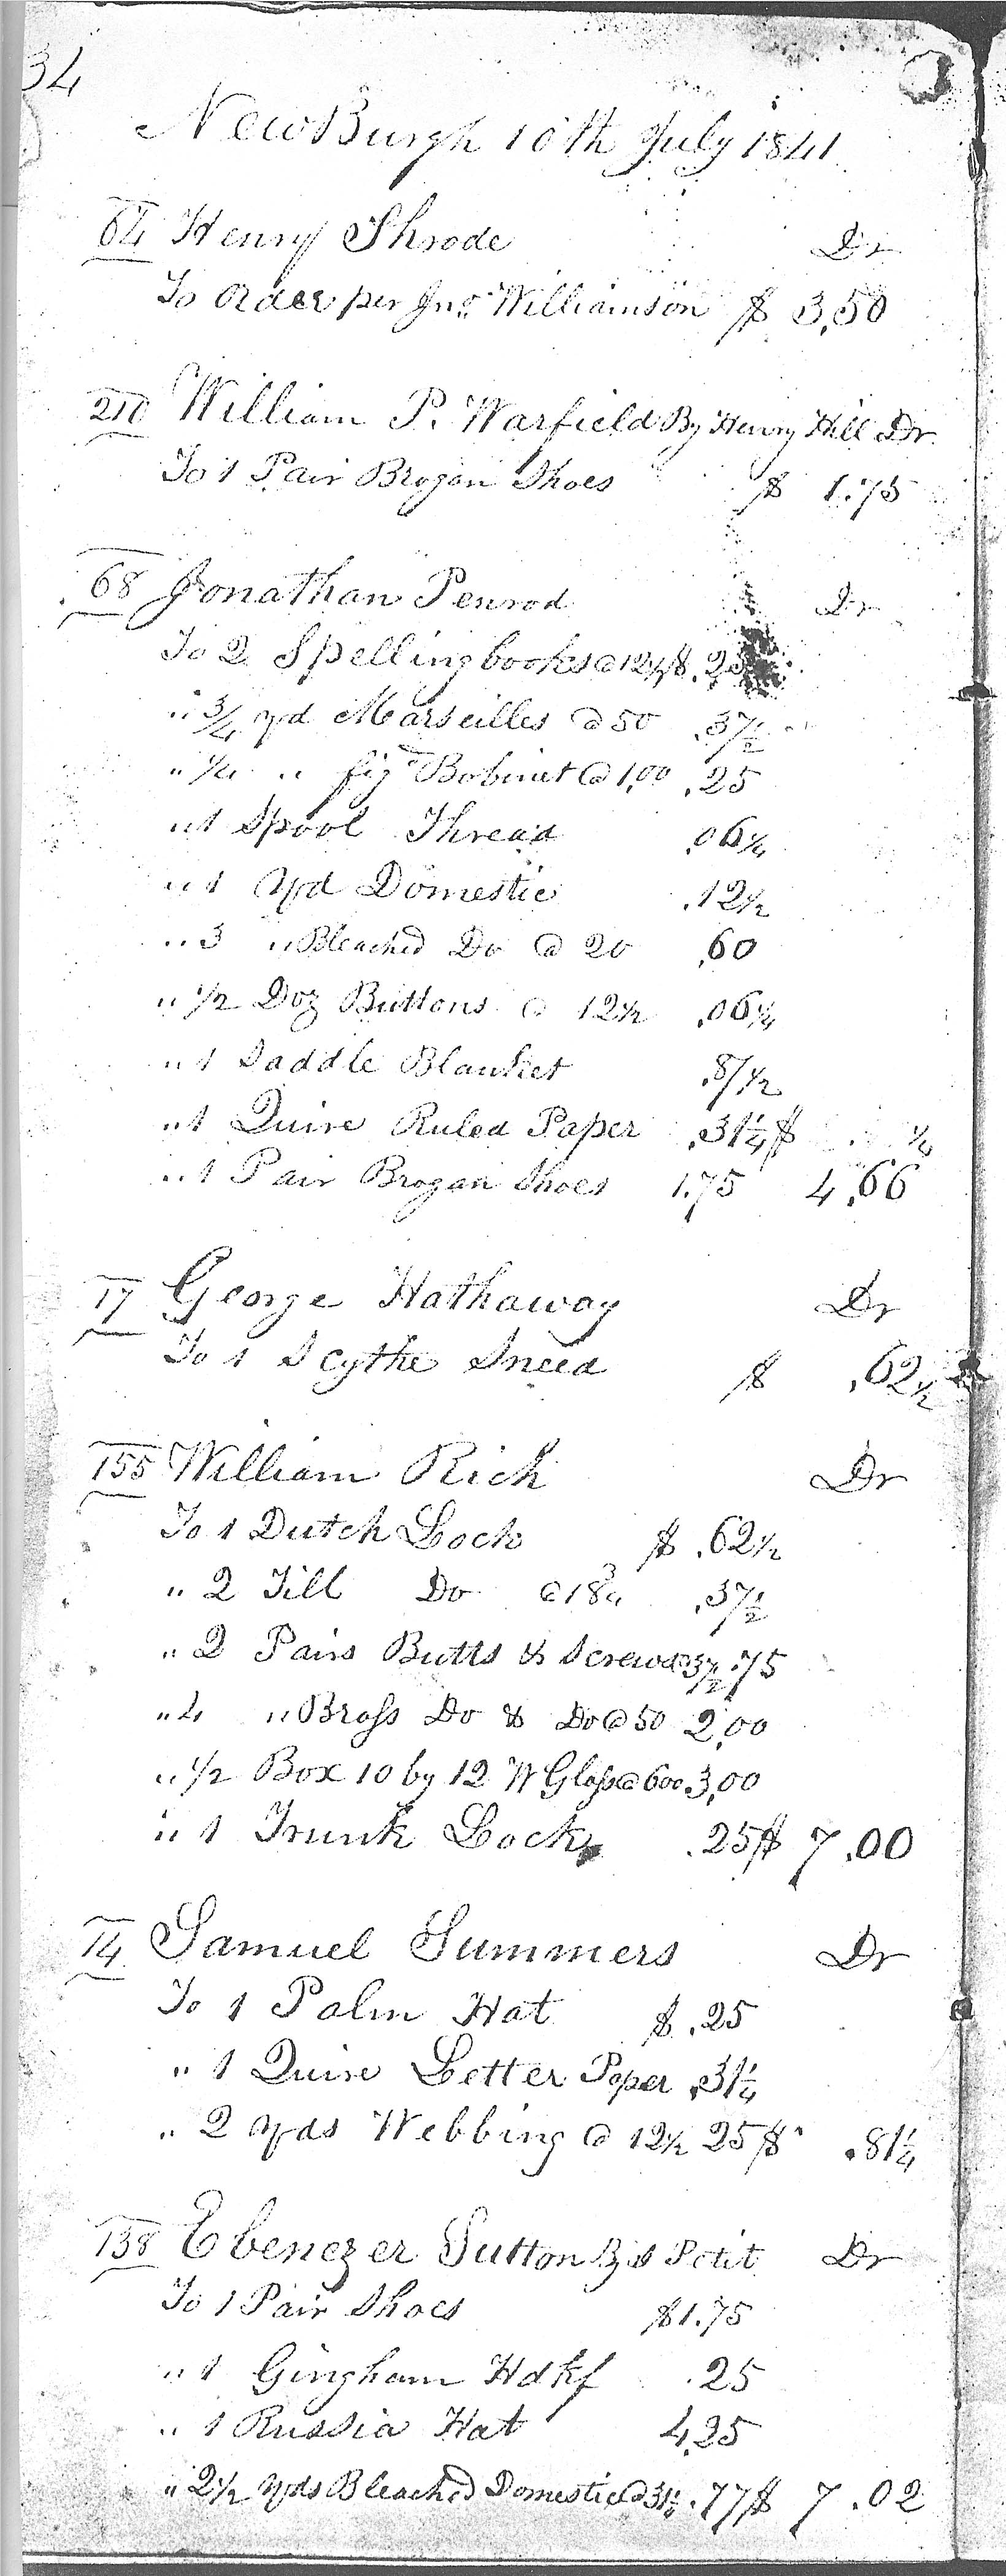 34
NewBurgh 10th July 1841
64 Henry Shrode Dr
To Order per Jno. Williamson $ 3,50
210 William P. Warfield By Henry Hill Dr
To 1 Pair Brogan Shoes $ 1.75
68 Jonathan Penrod Dr
To 2 Spelling books @ 12½ $ .25
" ¾ yd Marseilles @ 50 .37½
" ¼ " fig^d Bobinet @ 1,00 .25
" 1 Spool Thread .06¼
" 1 Yd Domestic .12½
" 3 " Bleached Do @ 20 .60
" ½ Doz Buttons @ 12½ .06¼
" 1 Saddle Blanket .87½
" 1 Quire Ruled Paper .31¼ $ ¼
" 1 Pair Brogan Shoes 1.75 4.66
17 George Hathaway Dr
To 1 Scythe Sneed $ .62½
155 William Rich Dr
To 1 Dutch Lock $ .62½
" 2 Till Do @ 18¾ .37½
" 2 Pairs Butts & Screws @ 37½ .75
" 4 " Brass Do & Do @ 50 2,00
" ½ Box 10 by 12 W Glass @ 600 3,00
" 1 Trunk Lock .25 $ 7.00
14 Samuel Summers Dr
To 1 Palm Hat $ .25
" 1 Quire Letter Paper .31¼
" 2 Yds Webbing @ 12½ 25 $ .81¼
138 Ebenezer Sutton By S Petit Dr
To 1 Pair Shoes $1.75
" 1 Gingham Hdkf .25
" 1 Russia Hat 4.25
" 2½ Yds Bleached Domestic @ 31¼ .77 $ 7.02